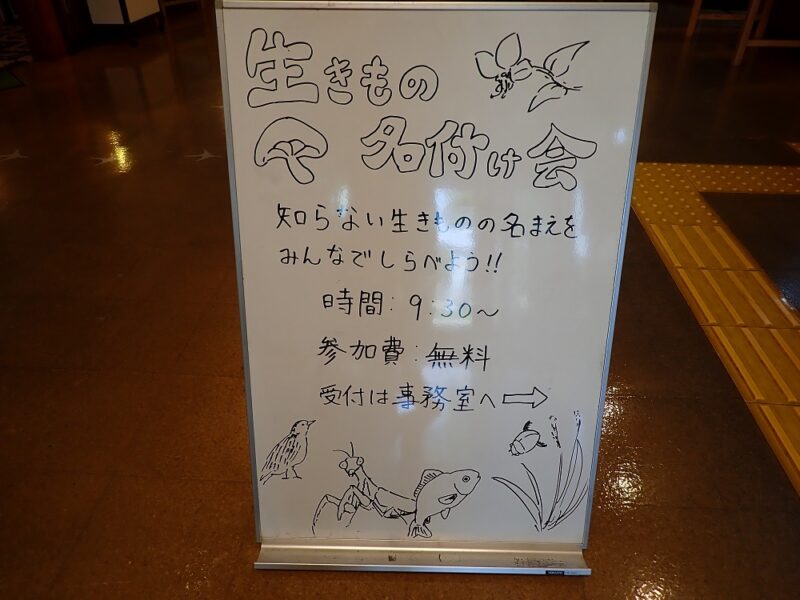 生きもの
名付け会
知らない生きものの名まえを
みんなでしらべよう!!
時間:9:30~
参加費:無料
受付は事務室へ→